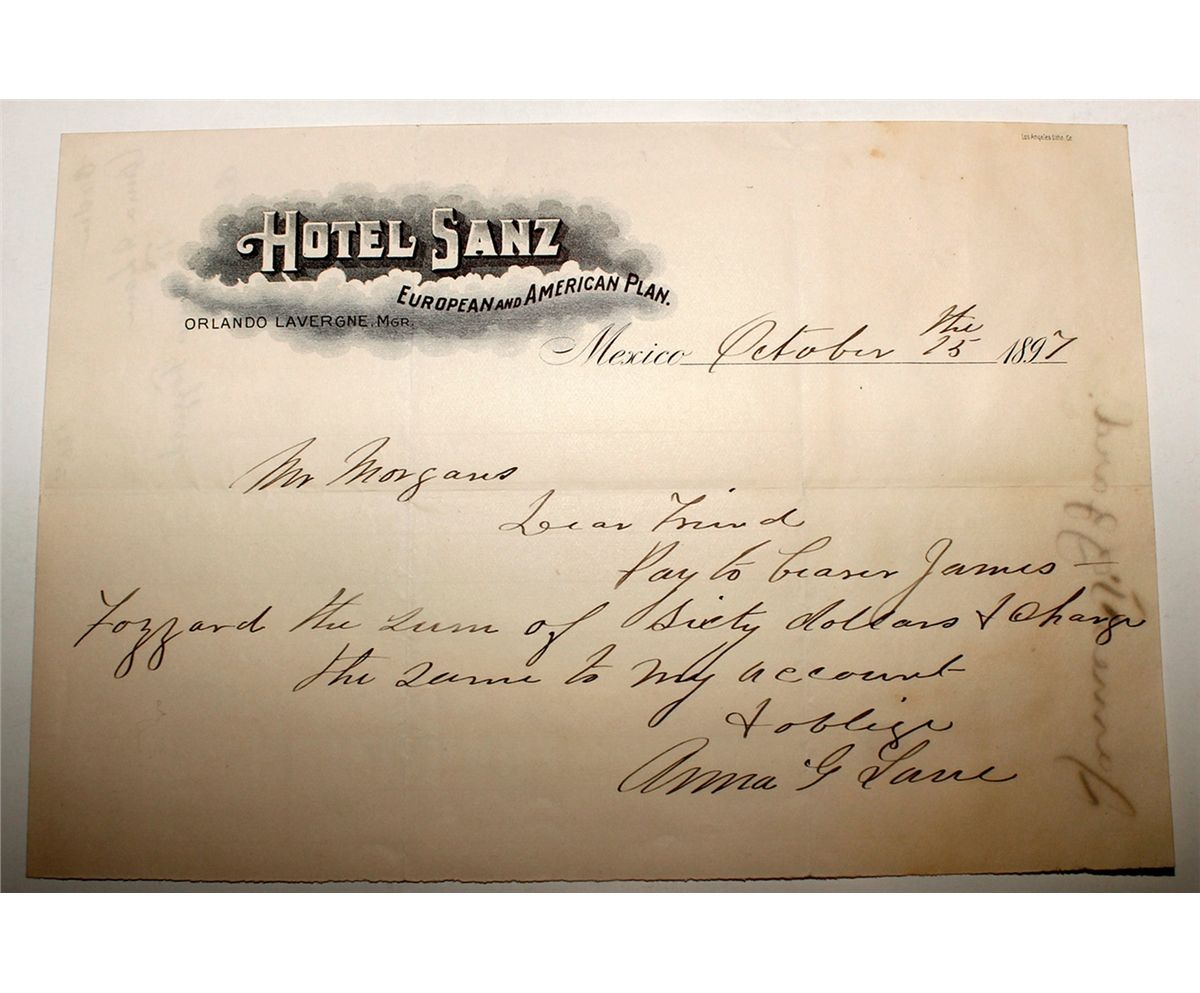 Los Angeles Litho. Co.
HOTEL SANZ
EUROPEAN AND AMERICAN PLAN.
ORLANDO LAVERGNE, MGR.
Mexico October the 15 1897
Mr Morgans
Dear Friend
Pay to bearer James
Fozzard the sum of Sixty dollars & charge
the same to my account
& oblige
Anna G Lane